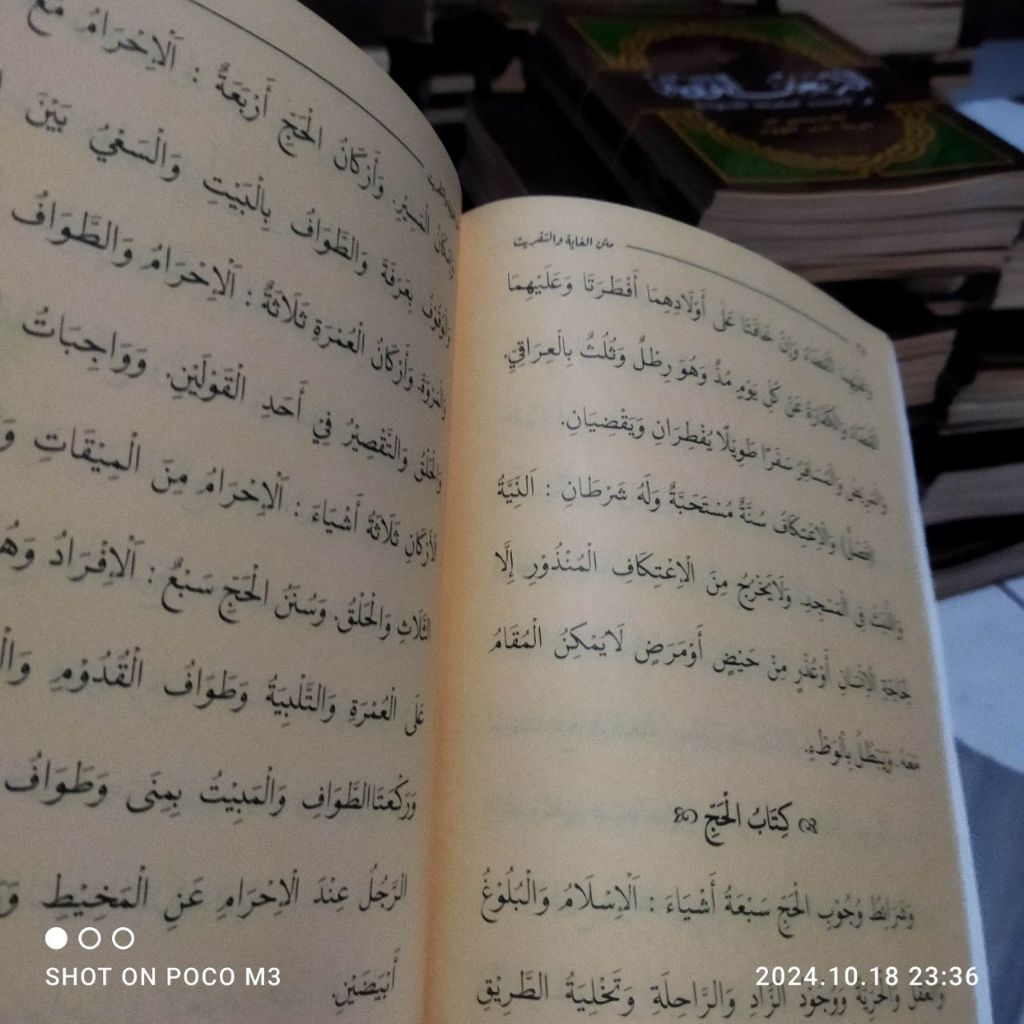 متن الغاية والتقريب
وَعَلَيْهِمَا الْقَضَاءُ وَإِنْ خَافَتَا عَلَى أَوْلَادِهِمَا أَفْطَرَتَا وَعَلَيْهِمَا
الْقَضَاءُ وَالْكَفَّارَةُ عَنْ كُلِّ يَوْمٍ مُدٌّ وَهُوَ رِطْلٌ وَثُلُثٌ بِالْعِرَاقِيِّ.
وَالْمَرِيْضُ وَالْمُسَافِرُ سَفَرًا طَوِيْلًا يُفْطِرَانِ وَيَقْضِيَانِ.
(فَصْلٌ) وَالْاِعْتِكَافُ سُنَّةٌ مُسْتَحَبَّةٌ وَلَهُ شَرْطَانِ : اَلنِّيَّةُ
وَاللُّبْثُ فِى الْمَسْجِدِ وَلَايَخْرُجُ مِنَ الْاِعْتِكَافِ الْمَنْذُوْرِ إِلَّا
لِحَاجَةِ الْإِنْسَانِ أَوْعُذْرٍ مِنْ حَيْضٍ أَوْمَرَضٍ لَايُمْكِنُ الْمُقَامُ
مَعَهُ وَيَبْطُلُ بِالْوَطْءِ.
كِتَابُ الْحَجِّ
وَشَرَائِطُ وُجُوْبِ الْحَجِّ سَبْعَةُ أَشْيَاءَ : اَلْاِسْلَامُ وَالْبُلُوْغُ
وَالْعَقْلُ وَالْحُرِّيَّةُ وَوُجُوْدُ الزَّادِ وَالرَّاحِلَةِ وَتَخْلِيَةُ الطَّرِيْقِ
الْمَسِيْرِ. وَأَرْكَانُ الْحَجِّ أَرْبَعَةٌ : اَلْاِحْرَامُ مَعَ
وَالْوُقُوْفُ بِعَرَفَةَ وَالطَّوَافُ بِالْبَيْتِ وَالسَّعْيُ بَيْنَ
وَالْمَرْوَةِ. وَأَرْكَانُ الْعُمْرَةِ ثَلَاثَةٌ : اَلْاِحْرَامُ وَالطَّوَافُ
وَالْحَلْقُ وَالتَّقْصِيْرُ فِي أَحَدِ الْقَوْلَيْنِ. وَوَاجِبَاتُ
الْأَرْكَانِ ثَلَاثَةُ أَشْيَاءَ : اَلْاِحْرَامُ مِنَ الْمِيْقَاتِ
الثَّلَاثِ وَالْحَلْقُ. وَسُنَنُ الْحَجِّ سَبْعٌ : اَلْاِفْرَادُ وَهُوَ
عَلَى الْعُمْرَةِ وَالتَّلْبِيَةُ وَطَوَافُ الْقُدُوْمِ
وَرَكْعَتَاالطَّوَافِ وَالْمَبِيْتُ بِمِنَى وَطَوَافُ
الرَّجُلُ عِنْدَ الْاِحْرَامِ عَنِ الْمَخِيْطِ
أَبْيَضَيْنِ.
SHOT ON POCO M3
2024.10.18 23:36